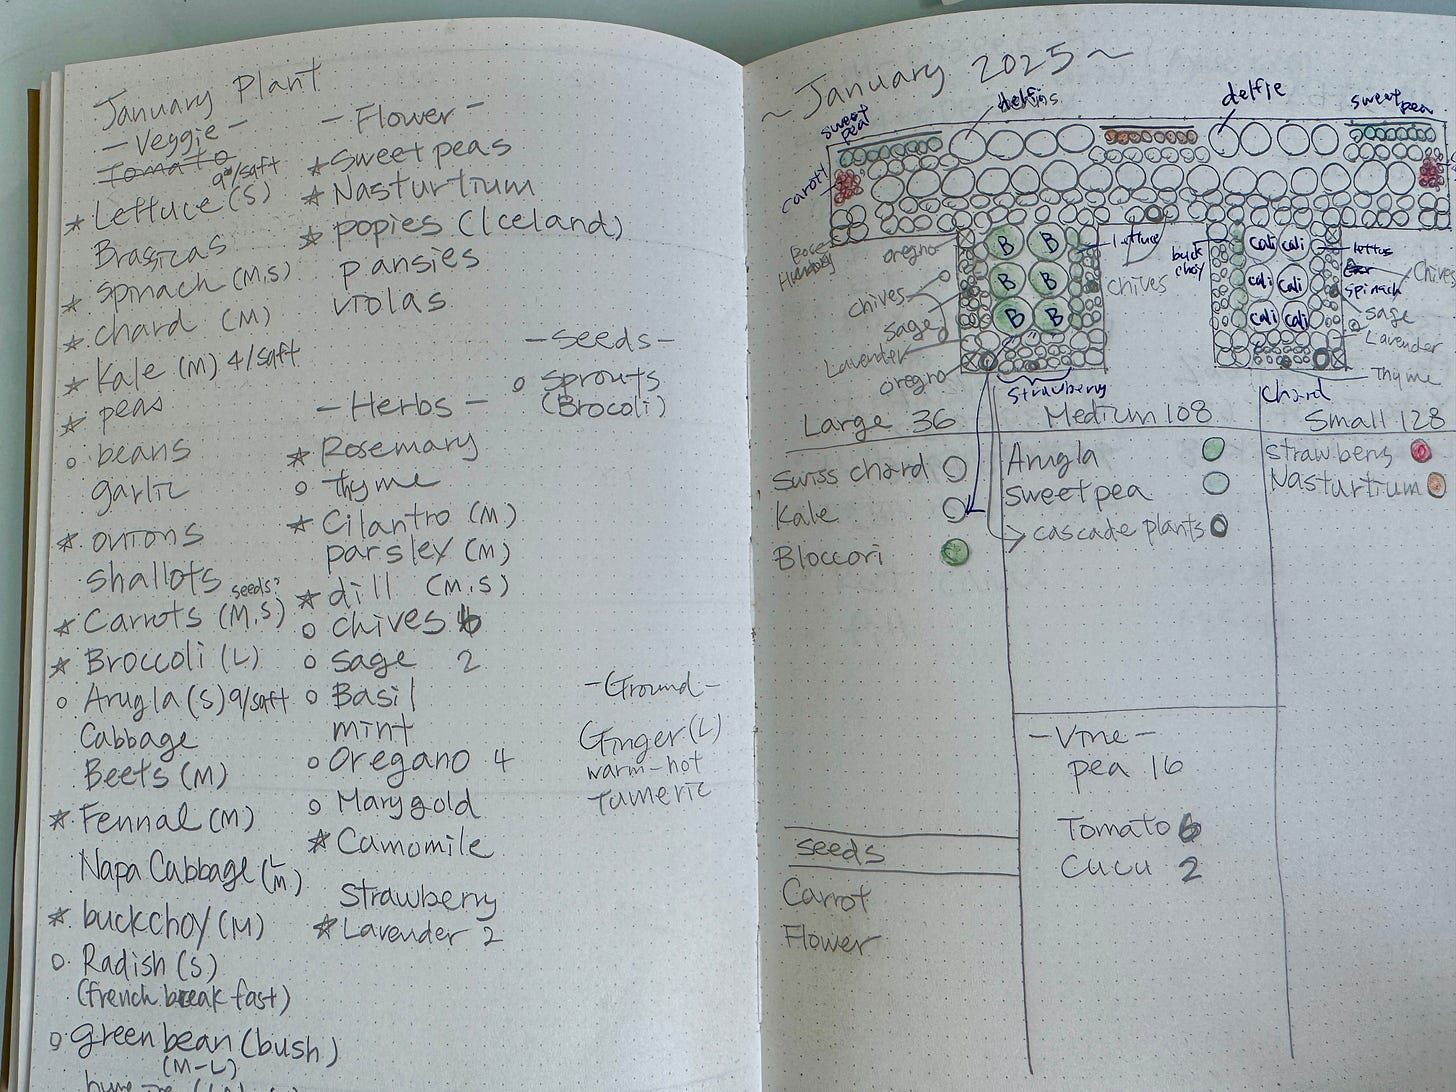 January Plant
- Veggie -
Tomato
9/sqft
* Lettuce (S)
Brasicas
* Spinach (M,S)
* chard (M)
* Kale (M) 4/sqft
* peas
o beans
garlic
* onions
shallots
seeds?
* Carrots (M,S)
* Broccoli (L)
o Arugla (S) 9/sqft
Cabbage
Beets (M)
* Fennal (M)
Napa Cabbage (L M)
* buckchoy (M)
o Radish (S)
(french break fast)
o green bean (bush)
(M-L)
- Flower -
* Sweet peas
* Nasturtium
* popies (Iceland)
pansies
violas
- Herbs -
* Rosemary
o Thyme
* Cilantro (M)
parsley (M)
* dill (M,S)
o chives 6
o sage 2
o Basil
mint
o Oregano 4
o Marygold
* Camomile
Strawberry
* Lavender 2
- Seeds -
o Sprouts
(Brocoli)
- Ground -
Ginger (L)
warm-hot
Tumeric
~ January 2025 ~
sweet pea
delfie
sweet pea
carrot
oregno
chives
sage
Lavender
oregno
B B
B B
B B
lettuce
chives
strawberry
buck choy
cali cali
cali cali
cali cali
lettus
spinach
Chives
sage
Lavender
Thyme
chard
Large 36
Swiss chard
Kale
Bloccori
Medium 108
Arugla
sweet pea
cascade plants
Small 128
strawberry
Nasturtium
- Vine -
pea 16
Tomato 6
Cucu 2
seeds
Carrot
Flower